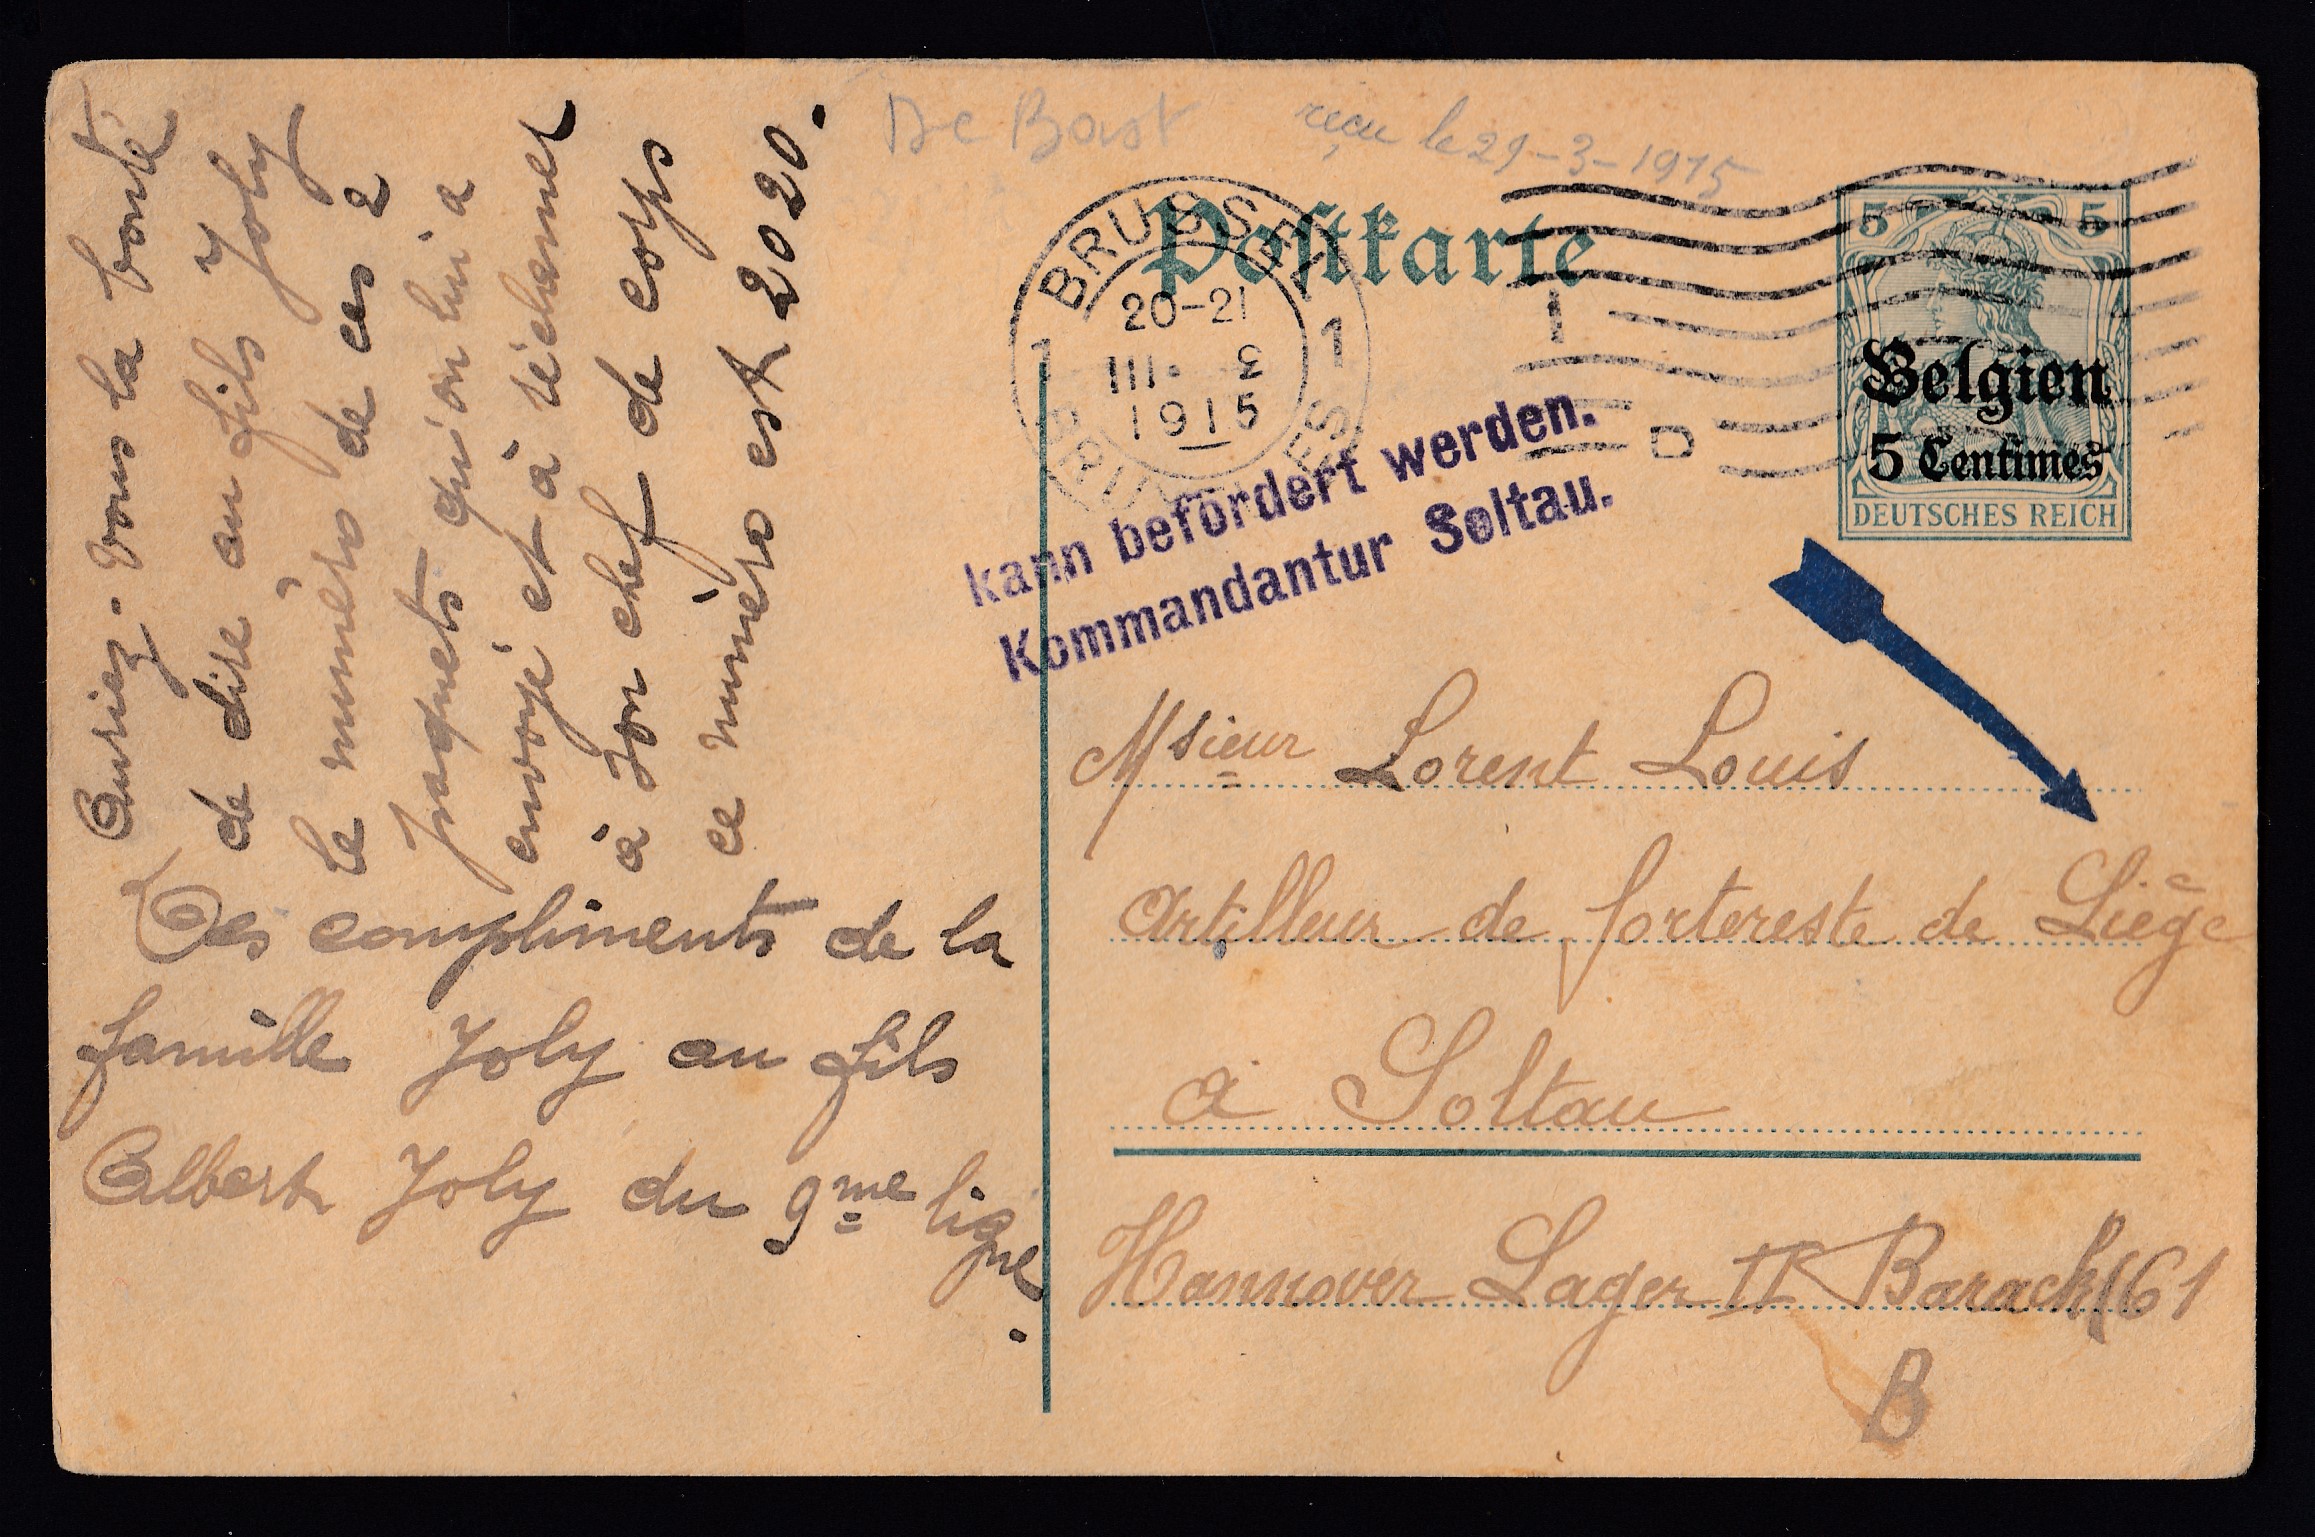 De Bast
reçu le 29-3-1915
Postkarte
BRUSSEL
20-21
1 1
III. 3
1915
BRUXELLES
1
D
5 5
Belgien
5 Centimes
DEUTSCHES REICH
kann befördert werden.
Kommandantur Soltau.
Msieur Lorent Louis
Artilleur de fortereste de Liége
à Soltau
Hannover Lager II Barack 61
B
Auriez-vous la bonté
de dire au fils Joly
le numéro de ces 2
paquets qu'on lui a
envoyé et à réclamer
à son chef de corps
ce numéro est 2020.
Des compliments de la
famille Joly au fils
Albert Joly du 9me ligne.